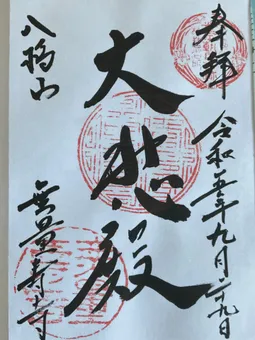 奉拝
令和五年九月廿九日
大悲殿
八橋山
無量寿寺